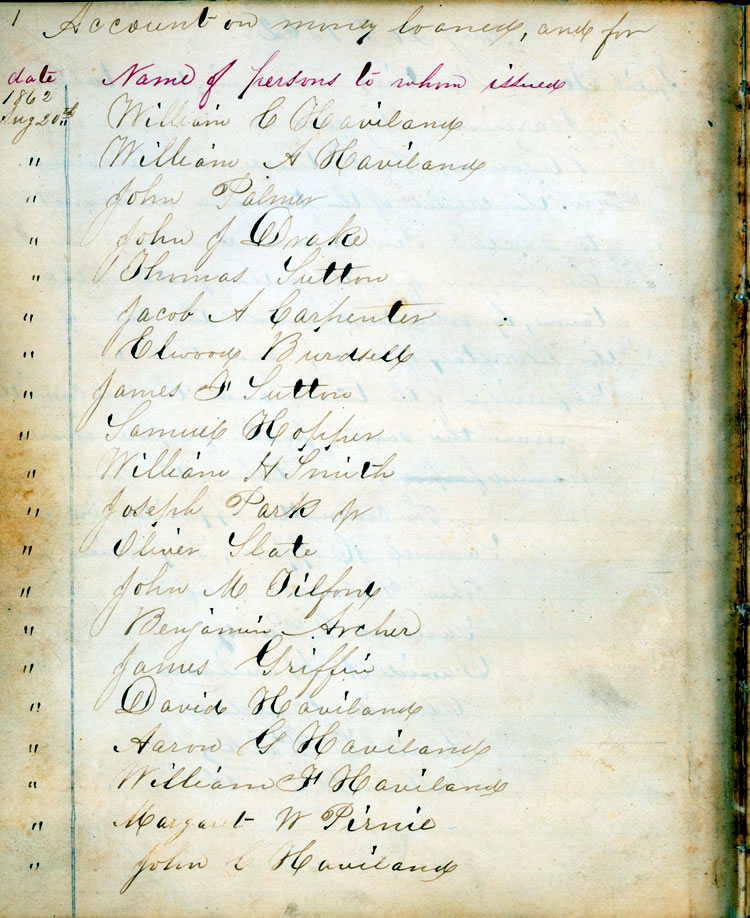 1 Account on money loaned, and for
date Name of persons to whom issued
1862
Aug 20th William C Haviland
" William A Haviland
" John Palmer
" John J Drake
" Thomas Sutton
" Jacob A Carpenter
" Elwood Burdsell
" James F Sutton
" Samuel Hopper
" William H Smith
" Joseph Park Jr
" Oliver Slate
" John M Tilford
" Benjamin Archer
" James Griffin
" David Haviland
" Aaron G Haviland
" William F Haviland
" Margaret W Pirnie
" John C Haviland